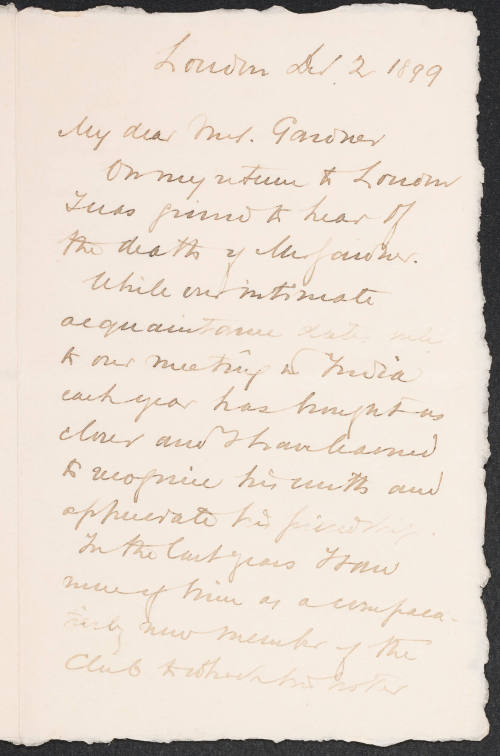 London Dec. 2 1899
My dear Mrs. Gardner
On my return to London
I was grieved to hear of
the death of Mr Gardner.
While our intimate
acquaintance dates only
to our meeting in India
each year has brought us
closer and I have learned
to recognise his worth and
appreciate his friendship.
In the last years I saw
more of him as a compara-
tively new member of the
Club to which his